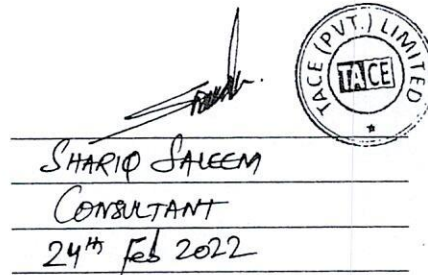 TACE (PVT.) LIMITED
TACE
SHARIQ SALEEM
CONSULTANT
24th Feb 2022